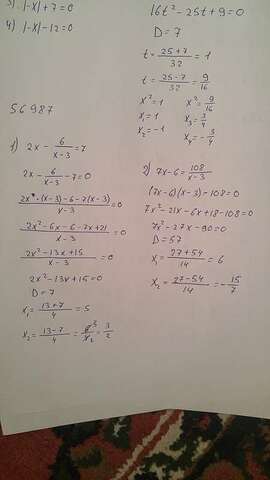 3) |-x|+7=0
4) |-x|-12=0
16t²-25t+9=0
D=7
t=(25+7)/32=1
t=(25-7)/32=9/16
x²=1 x²=9/16
x₁=1 x₃=3/4
x₂=-1 x₄=-3/4
56987
1) 2x-6/(x-3)=7
2x-6/(x-3)-7=0
(2x·(x-3)-6-7(x-3))/(x-3)=0
(2x²-6x-6-7x+21)/(x-3)=0
(2x²-13x+15)/(x-3)=0
2x²-13x+15=0
D=7
x₁=(13+7)/4=5
x₂=(13-7)/4=6/4=3/2
2) 7x-6=108/(x-3)
(7x-6)(x-3)-108=0
7x²-21x-6x+18-108=0
7x²-27x-90=0
D=57
x₁=(27+54)/14=6
x₂=(27-54)/14=-15/7